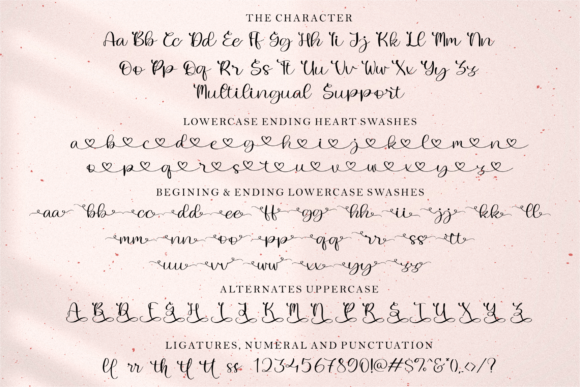 THE CHARACTER
Aa Bb Cc Dd Ee Ff Gg Hh Ii Jj Kk Ll Mm Nn
Oo Pp Qq Rr Ss Tt Uu Vv Ww Xx Yy Zz
Multilingual Support
LOWERCASE ENDING HEART SWASHES
a b c d e g h i j k l m n
o p q r s t u v w x y z
BEGINING & ENDING LOWERCASE SWASHES
aa bb cc dd ee ff gg hh ii jj kk ll
mm nn oo pp qq rr ss tt
uu vv ww xx yy zz
ALTERNATES UPPERCASE
A B D E G H K M N P R S X Y Z
LIGATURES, NUMERAL AND PUNCTUATION
ll rr th tl tt ss 1234567890!@#$%^&*()/?